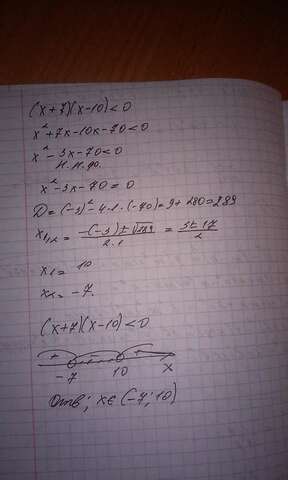 (x+7)(x-10)<0
x²+7x-10x-70<0
x²-3x-70<0
н.м.ф.
x²-3x-70=0
D=(-3)²-4·1·(-70)=9+280=289
x₁,₂ = -(-3)±√289 / 2·1 = 3±17 / 2
x₁= 10
x₂= -7.
(x+7)(x-10)<0
+ - +
-7 10 x
Отв; x∈(-7; 10)